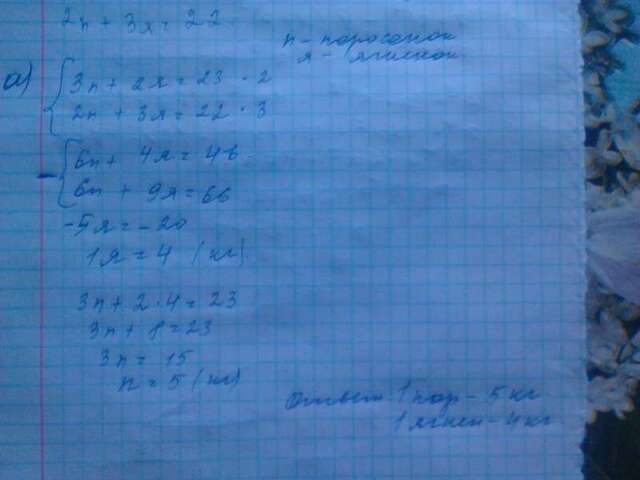 2п + 3я = 22
п - поросенок
я - ягненок
а)
3п + 2я = 23 · 2
2п + 3я = 22 · 3
- 6п + 4я = 46
6п + 9я = 66
-5я = -20
1я = 4 (кг)
3п + 2 · 4 = 23
3п + 8 = 23
3п = 15
п = 5 (кг)
Ответ: 1 пор - 5 кг
1 ягнен - 4 кг